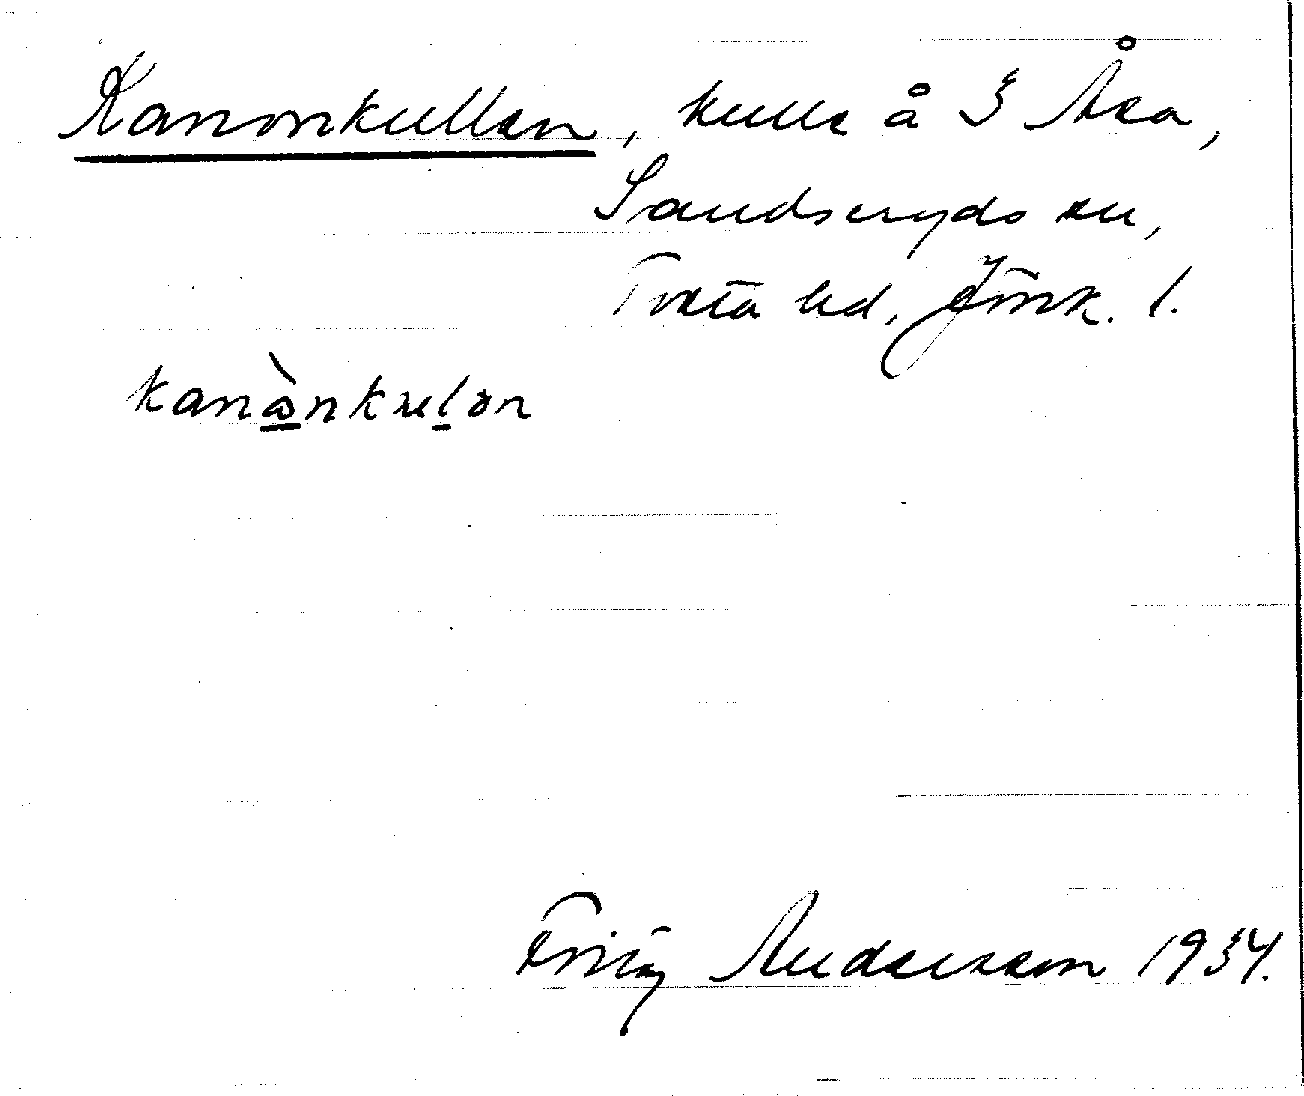 Kanonkullen, kulle å § Åsa,
Sandseryds sn,
Tveta hd, Jönk. l.
kanònkulən
Fritz Andersson 1934.